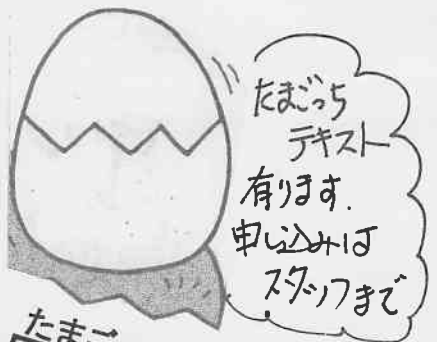 たまごっち
テキスト
有ります.
申し込みは
スタッフまで
たまご